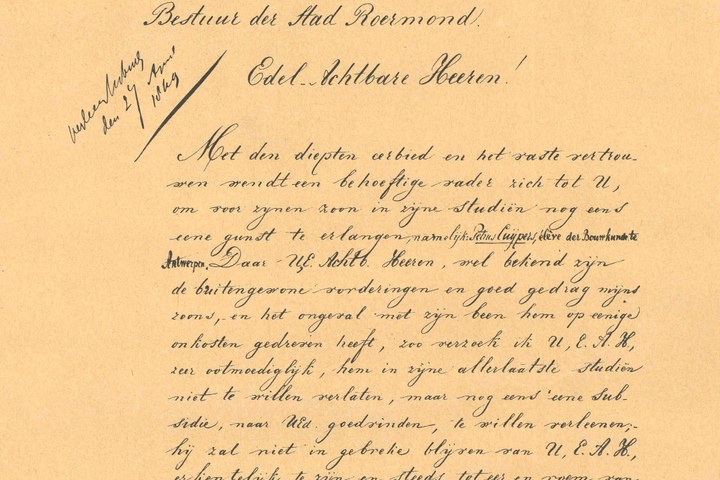 Bestuur der Stad Roermond.
den 27 April
1849
Edel-Achtbare Heeren!
Met den diepten eerbied en het vaste vertrou-
wen wendt een behoeftige vader zich tot U,
om voor zynen zoon in zijne studiën nog eens
eene gunst te erlangen, namelijk: Petrus Cuÿpers, élève der Bouwkunde te
Antwerpen, Daar UE. Achtb. Heeren, wel bekend zijn
de buitengewone vorderingen en goed gedrag mijns
zoons, en het ongeval met zijn been hem op eenige
onkosten gedreven heeft, zoo verzoek ik U, E. A. H.,
zeer ootmoediglijk, hem in zijne allerlaatste studiën
niet te willen verlaten, maar nog eens eene sub-
sidie, naar Ued. goedvinden, te willen verleenen;-
hij zal niet in gebreke blijven van U, E. A. H.,
erkentelijk te zijn en steeds tot eer en roem van